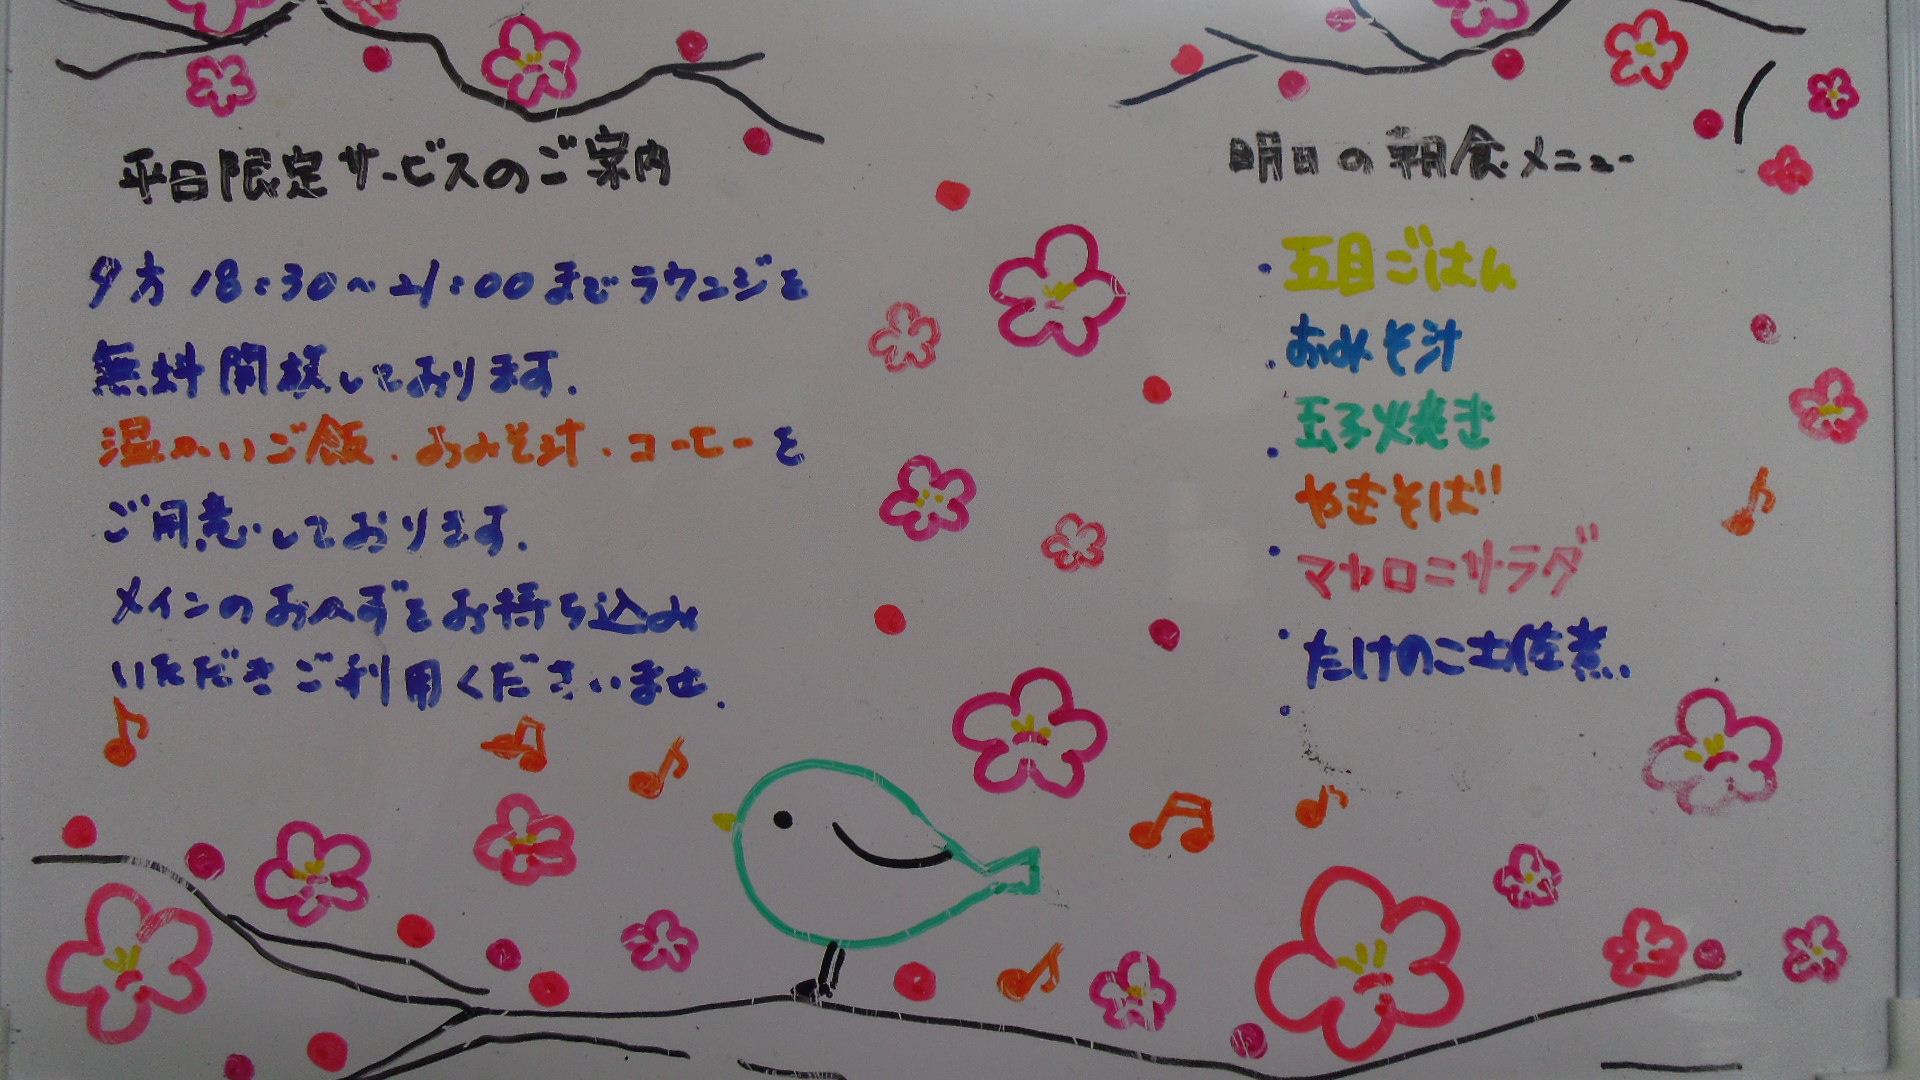 平日限定サービスのご案内
夕方18:30～21:00までラウンジを
無料開放しております.
温かいご飯.おみそ汁.コーヒーを
ご用意しております.
メインのおかずをお持ち込み
いただきご利用くださいませ.
明日の朝食メニュー
・五目ごはん
・おみそ汁
・玉子焼き
・やきそば
・マカロニサラダ
・たけのこ土佐煮.
・